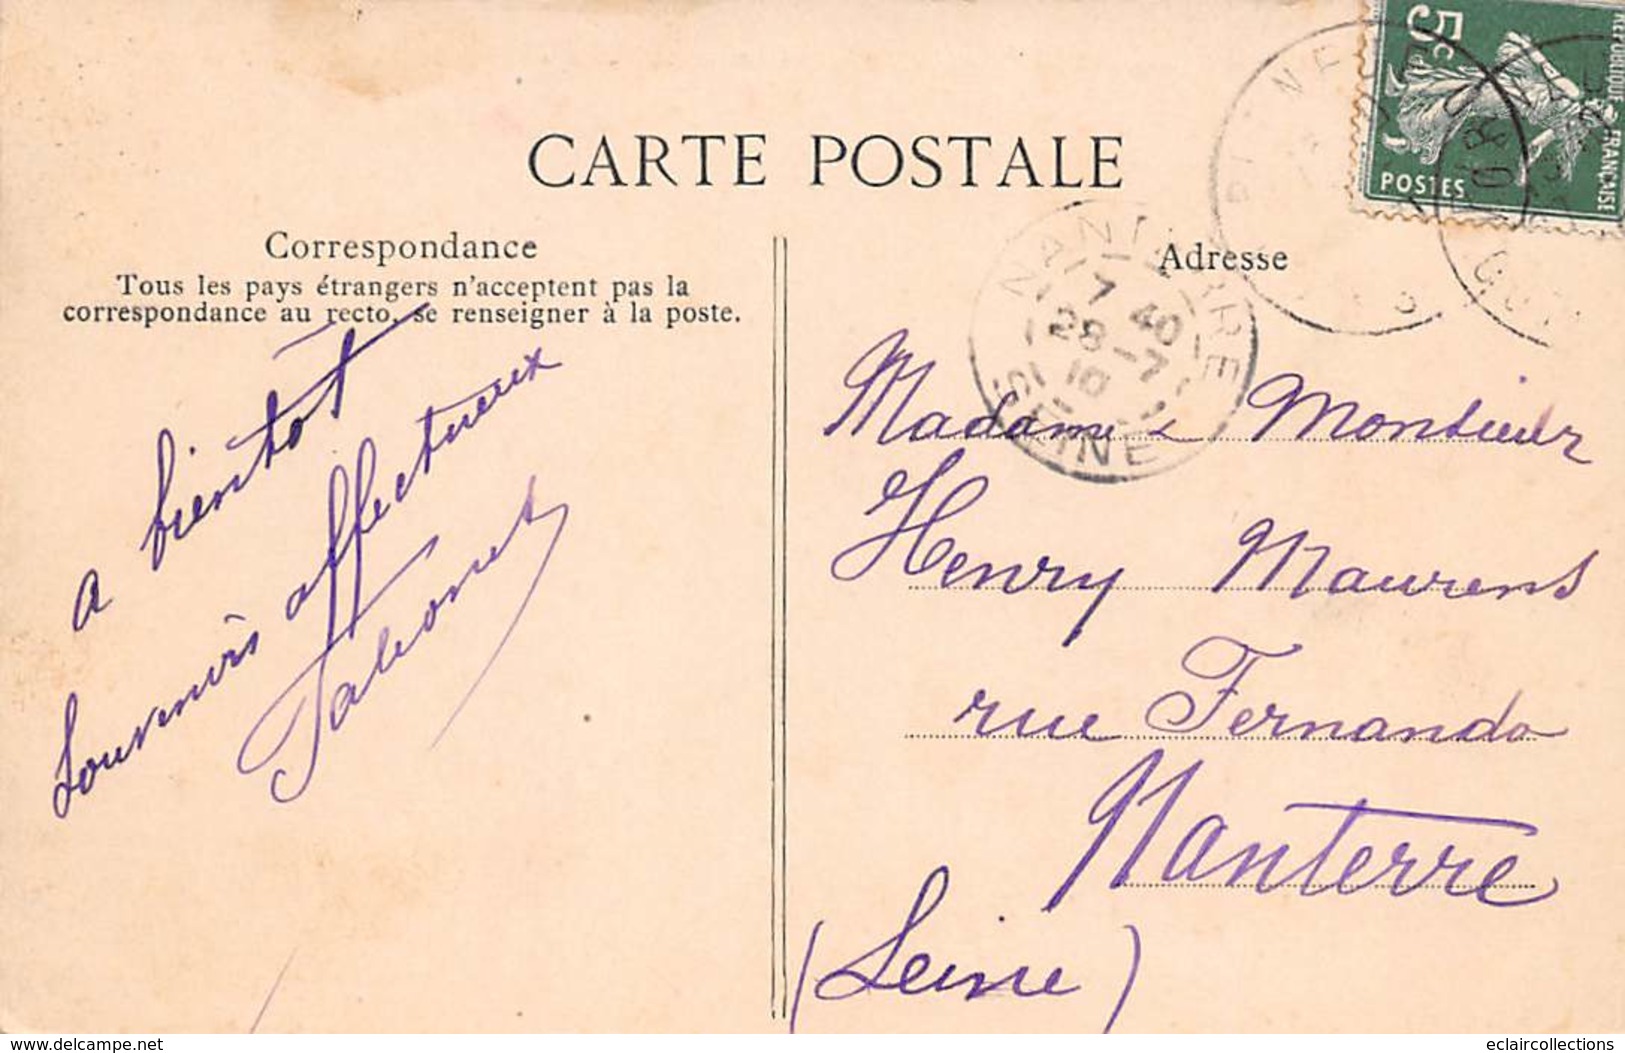 CARTE POSTALE
Correspondance
Tous les pays étrangers n'acceptent pas la
correspondance au recto, se renseigner à la poste.
a bientôt
Souvenirs affectueux
Adresse
5c
POSTES
REPUBLIQUE FRANÇAISE
NANTERRE
7 40
28 -7
10
SEINE
Madame & Monsieur
Henry Maurens
rue Fernando
Nanterre
(Seine)
www.delcampe.net
eclaircollections